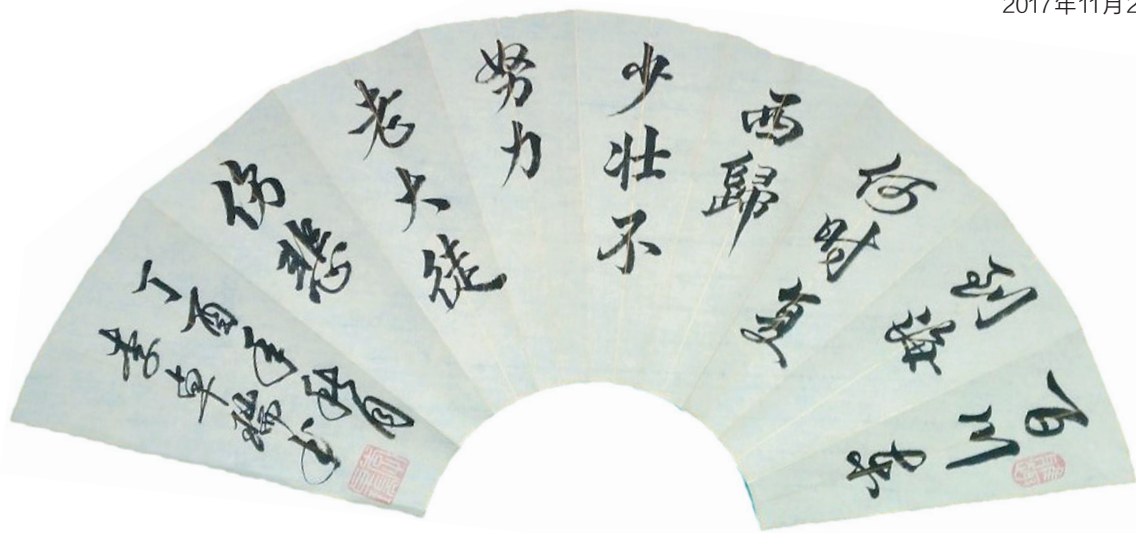 2017年11月2
百川東
到海
何时更
西歸
少壮不
努力
老大徒
伤悲
丁酉年 月
李卓 书